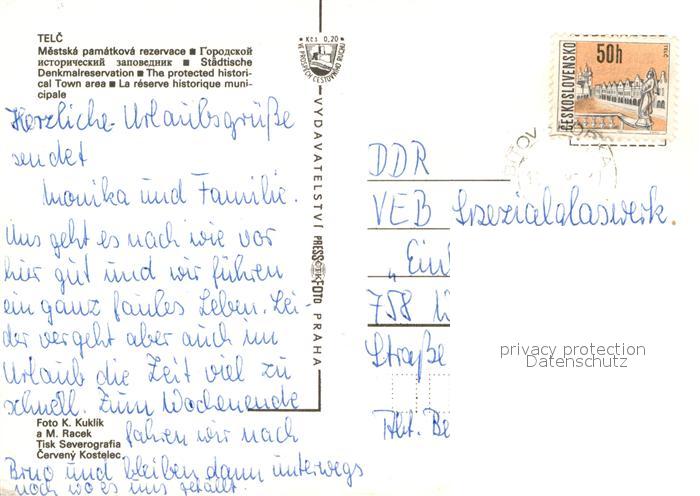 TELČ
Městská památková rezervace ■ Городской
исторический заповедник ■ Städtische
Denkmalreservation ■ The protected histori-
cal Town area ■ La réserve historique muni-
cipale
Herzliche Urlaubsgrüße
sendet
Monika und Familie.
Uns geht es nach wie vor
hier gut und wir führen
ein ganz faules Leben. Lei-
der vergeht aber auch im
Urlaub die Zeit viel zu
schnell. Zum Wochenende
fahren wir nach
Brno und bleiben dann unterwegs
noch wo es uns gefällt.
Foto K. Kuklík
a M. Racek
Tisk Severografia
Červený Kostelec
Kčs 0,20
VE PROSPĚCH CESTOVNÍHO RUCHU
VYDAVATELSTVÍ PRESSFOTO PRAHA
ČESKOSLOVENSKO
50h
TELČ
DDR
VEB Spezialglaswerk
„Ein
758
Straße
Abt. Be
privacy protection
Datenschutz